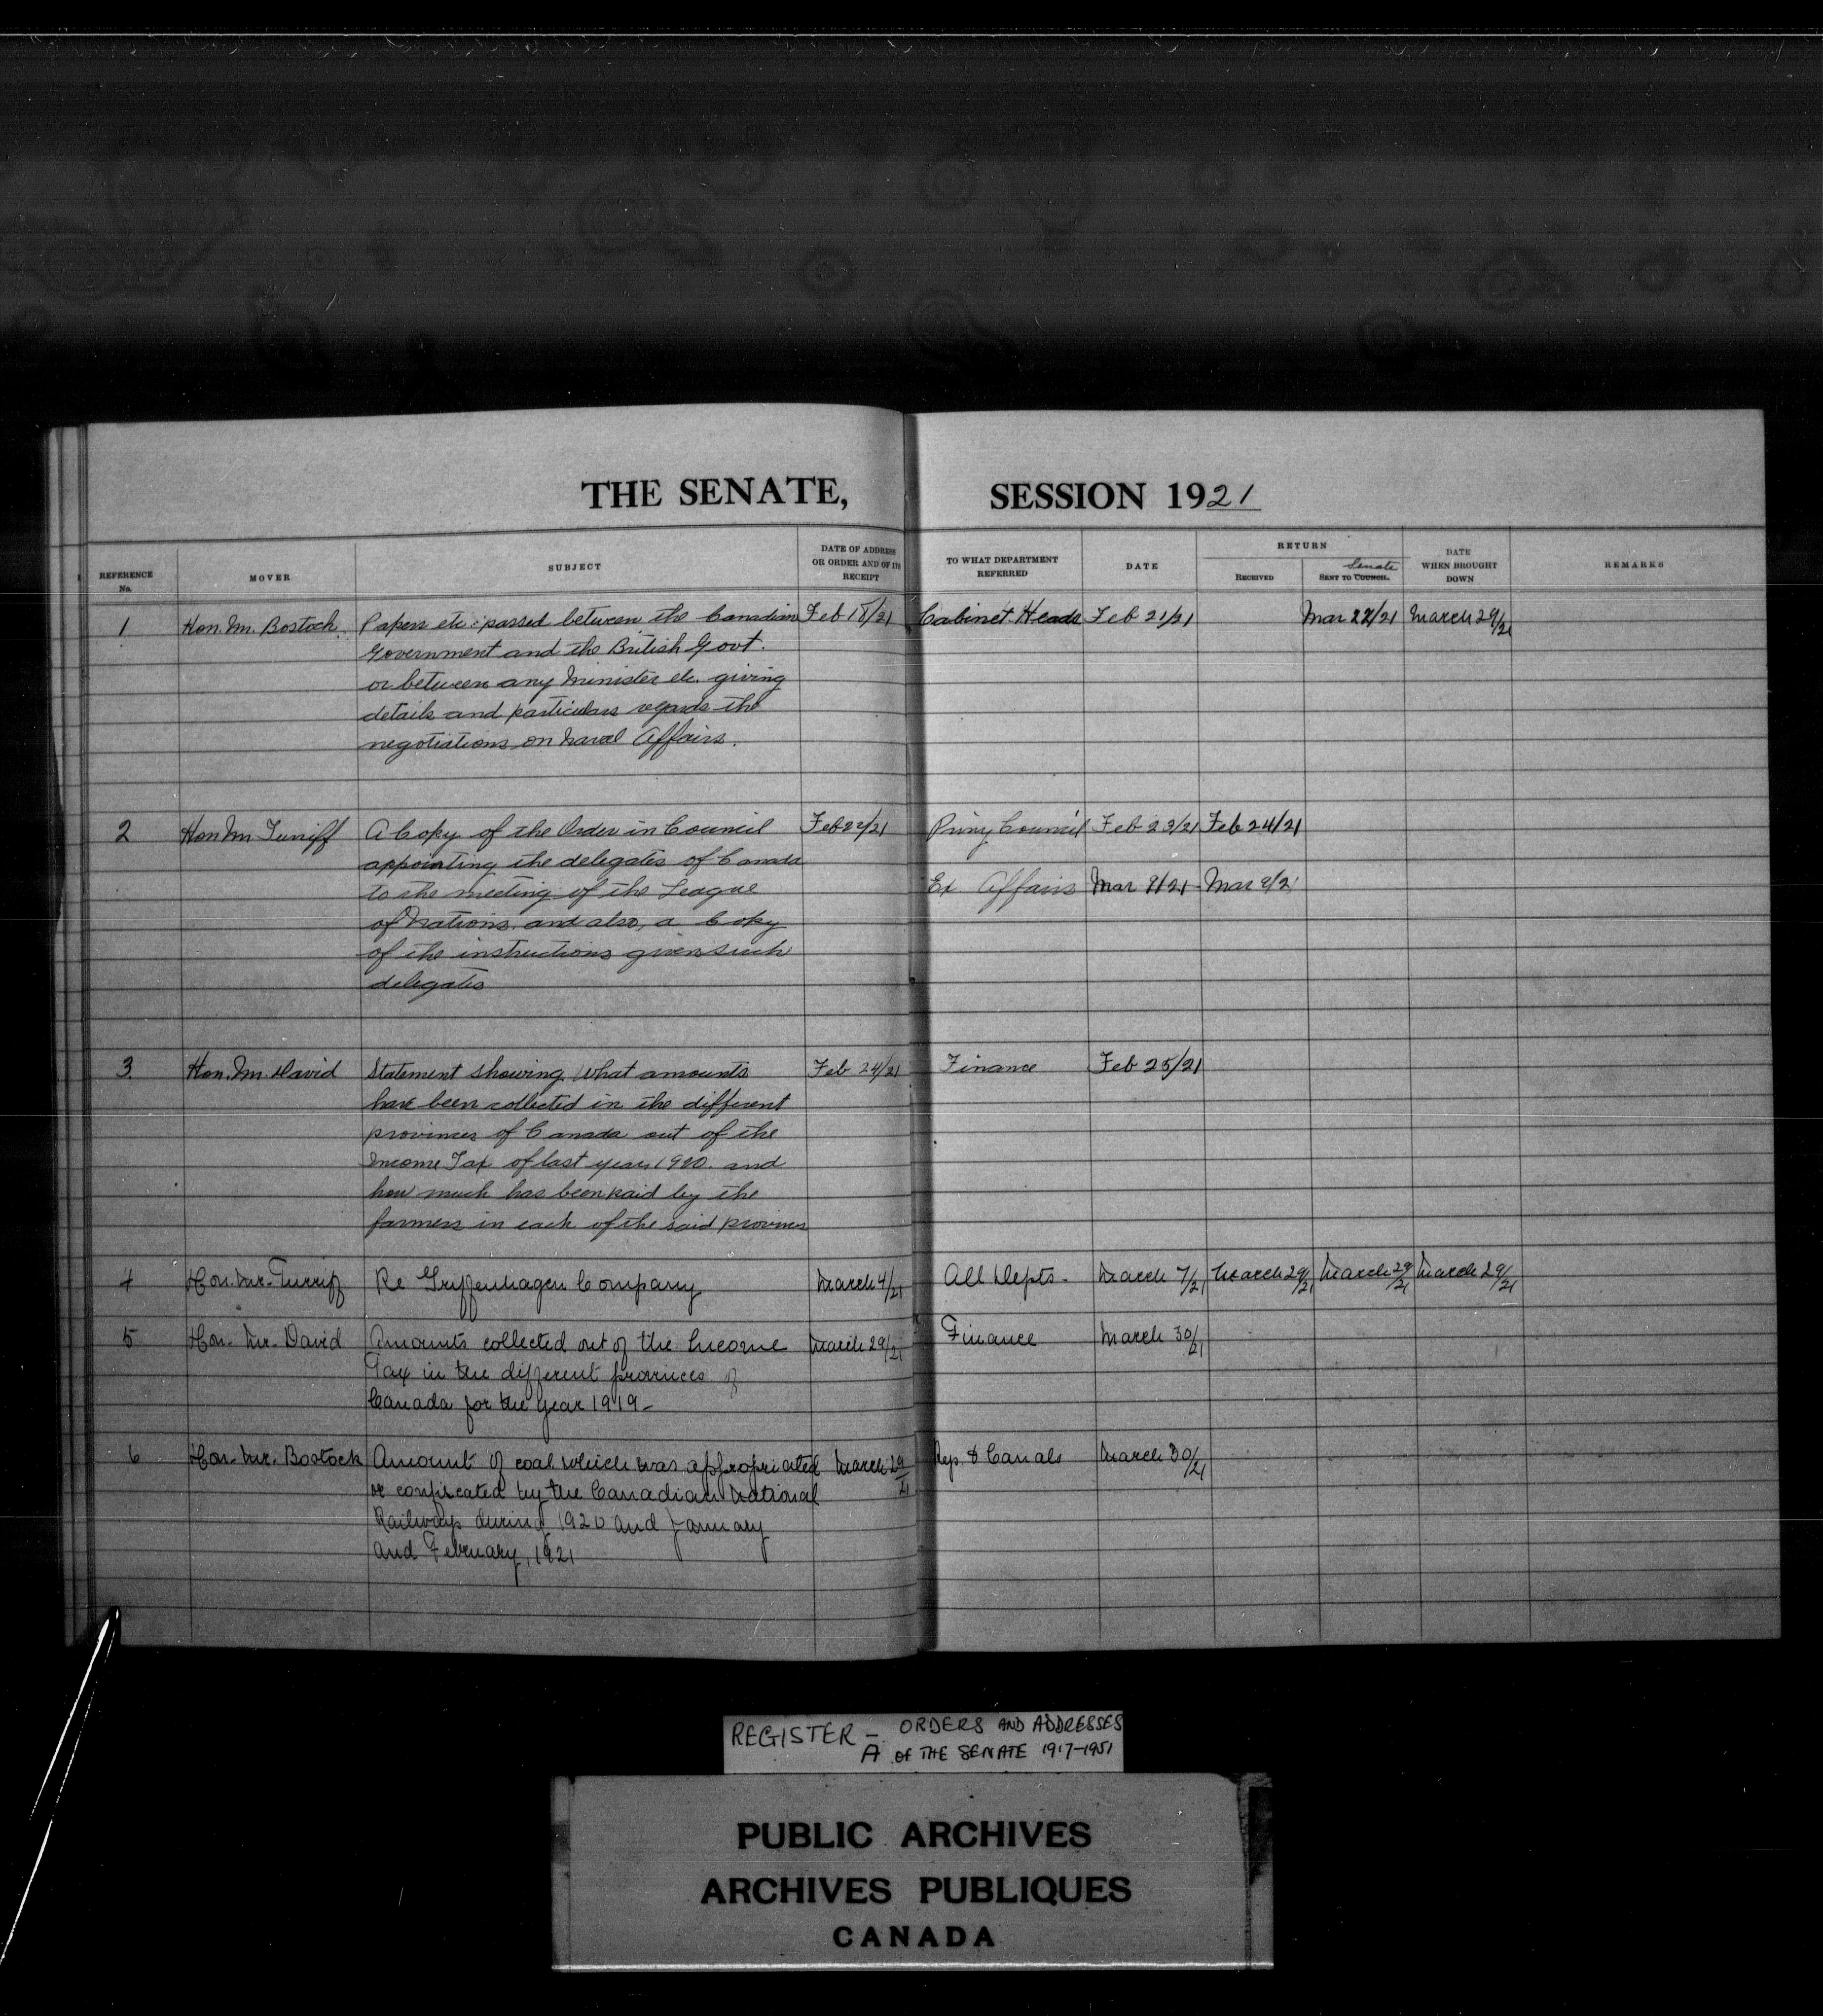 THE SENATE, SESSION 1921
REFERENCE No. MOVER SUBJECT DATE OF ADDRESS OR ORDER AND OF ITS RECEIPT TO WHAT DEPARTMENT REFERRED DATE RETURN RECEIVED SENT TO COUNCIL. Senate DATE WHEN BROUGHT DOWN REMARKS
1 Hon. Mr. Bostock. Papers etc: passed between the Canadian Feb 18/21 Cabinet Heads Feb 21/21 Mar 22/21 March 29/21
Government and the British Govt.
or between any Minister etc. giving
details and particulars regards the
negotiations on Naval Affairs.
2 Hon Mr Turriff A Copy of the Order in Council Feb 22/21 Privy Council Feb 23/21 Feb 24/21
appointing the delegates of Canada
to the meeting of the League Ex Affairs Mar 9/21 Mar 9/21
of Nations, and also, a Copy
of the instructions given such
delegates
3 Hon. Mr. David Statement showing what amounts Feb 24/21 Finance Feb 25/21
have been collected in the different
provinces of Canada out of the
Income Tax of last year, 1920. and
how much has been paid by the
farmers in each of the said provinces
4 Hon. Mr. Turriff Re Griffenhagen Company March 4/21 All Depts. March 7/21 March 29/21 March 29/21 March 29/21
5 Hon. Mr. David Amounts collected out of the Income March 29/21 Finance March 30/21
Tax in the different provinces of
Canada for the year 1919-
6 Hon. Mr. Bostock Amount of coal which was appropriated March 29/21 Rys. & Canals March 30/21
or confiscated by the Canadian National
Railways during 1920 and January
and February, 1921
REGISTER - ORDERS AND ADDRESSES
A OF THE SENATE 1917-1951
PUBLIC ARCHIVES
ARCHIVES PUBLIQUES
CANADA